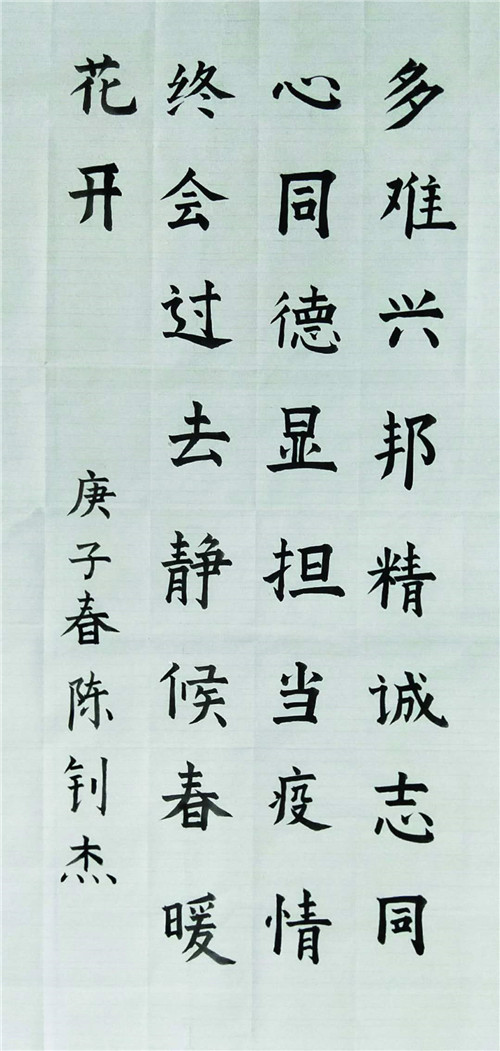 多难兴邦精诚志同
心同德显担当疫情
终会过去静候春暖
花开
庚子春陈钊杰